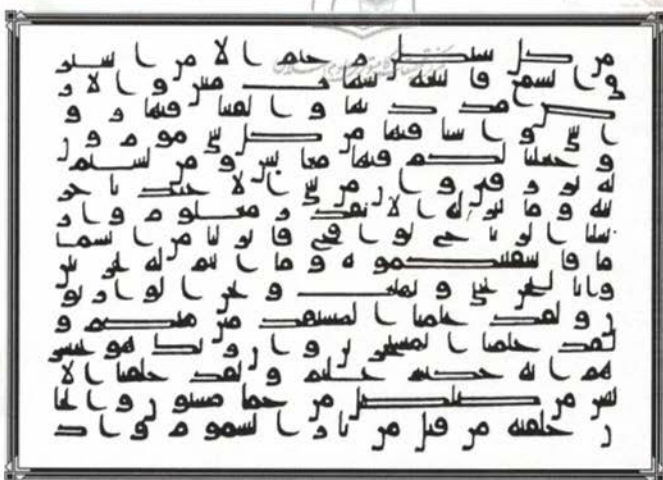 من كل شيطن رجيم الا من استر
ق السمع فاتبعه شهاب مبين والار
ض مددنها والقينا فيها رو
ا سي وانبتنا فيها من كل شي موزون
وجعلنا لكم فيها معيش ومن لستم
له برزقين وان من شي الا عندنا خز
ئنه وما ننزله الا بقدر معلوم وار
سلنا الريح لوقح فانزلنا من السما
ما فاسقينكموه وما انتم له بخزنين
وانا لنحن نحي ونميت ونحن الوارثو
ن ولقد علمنا المستقدمين منكم و
لقد علمنا المستخرين وان ربك هو يحشر
هم انه حكيم عليم ولقد خلقنا الا
نسن من صلصل من حما مسنون والجا
ن خلقنه من قبل من نار السموم واذ